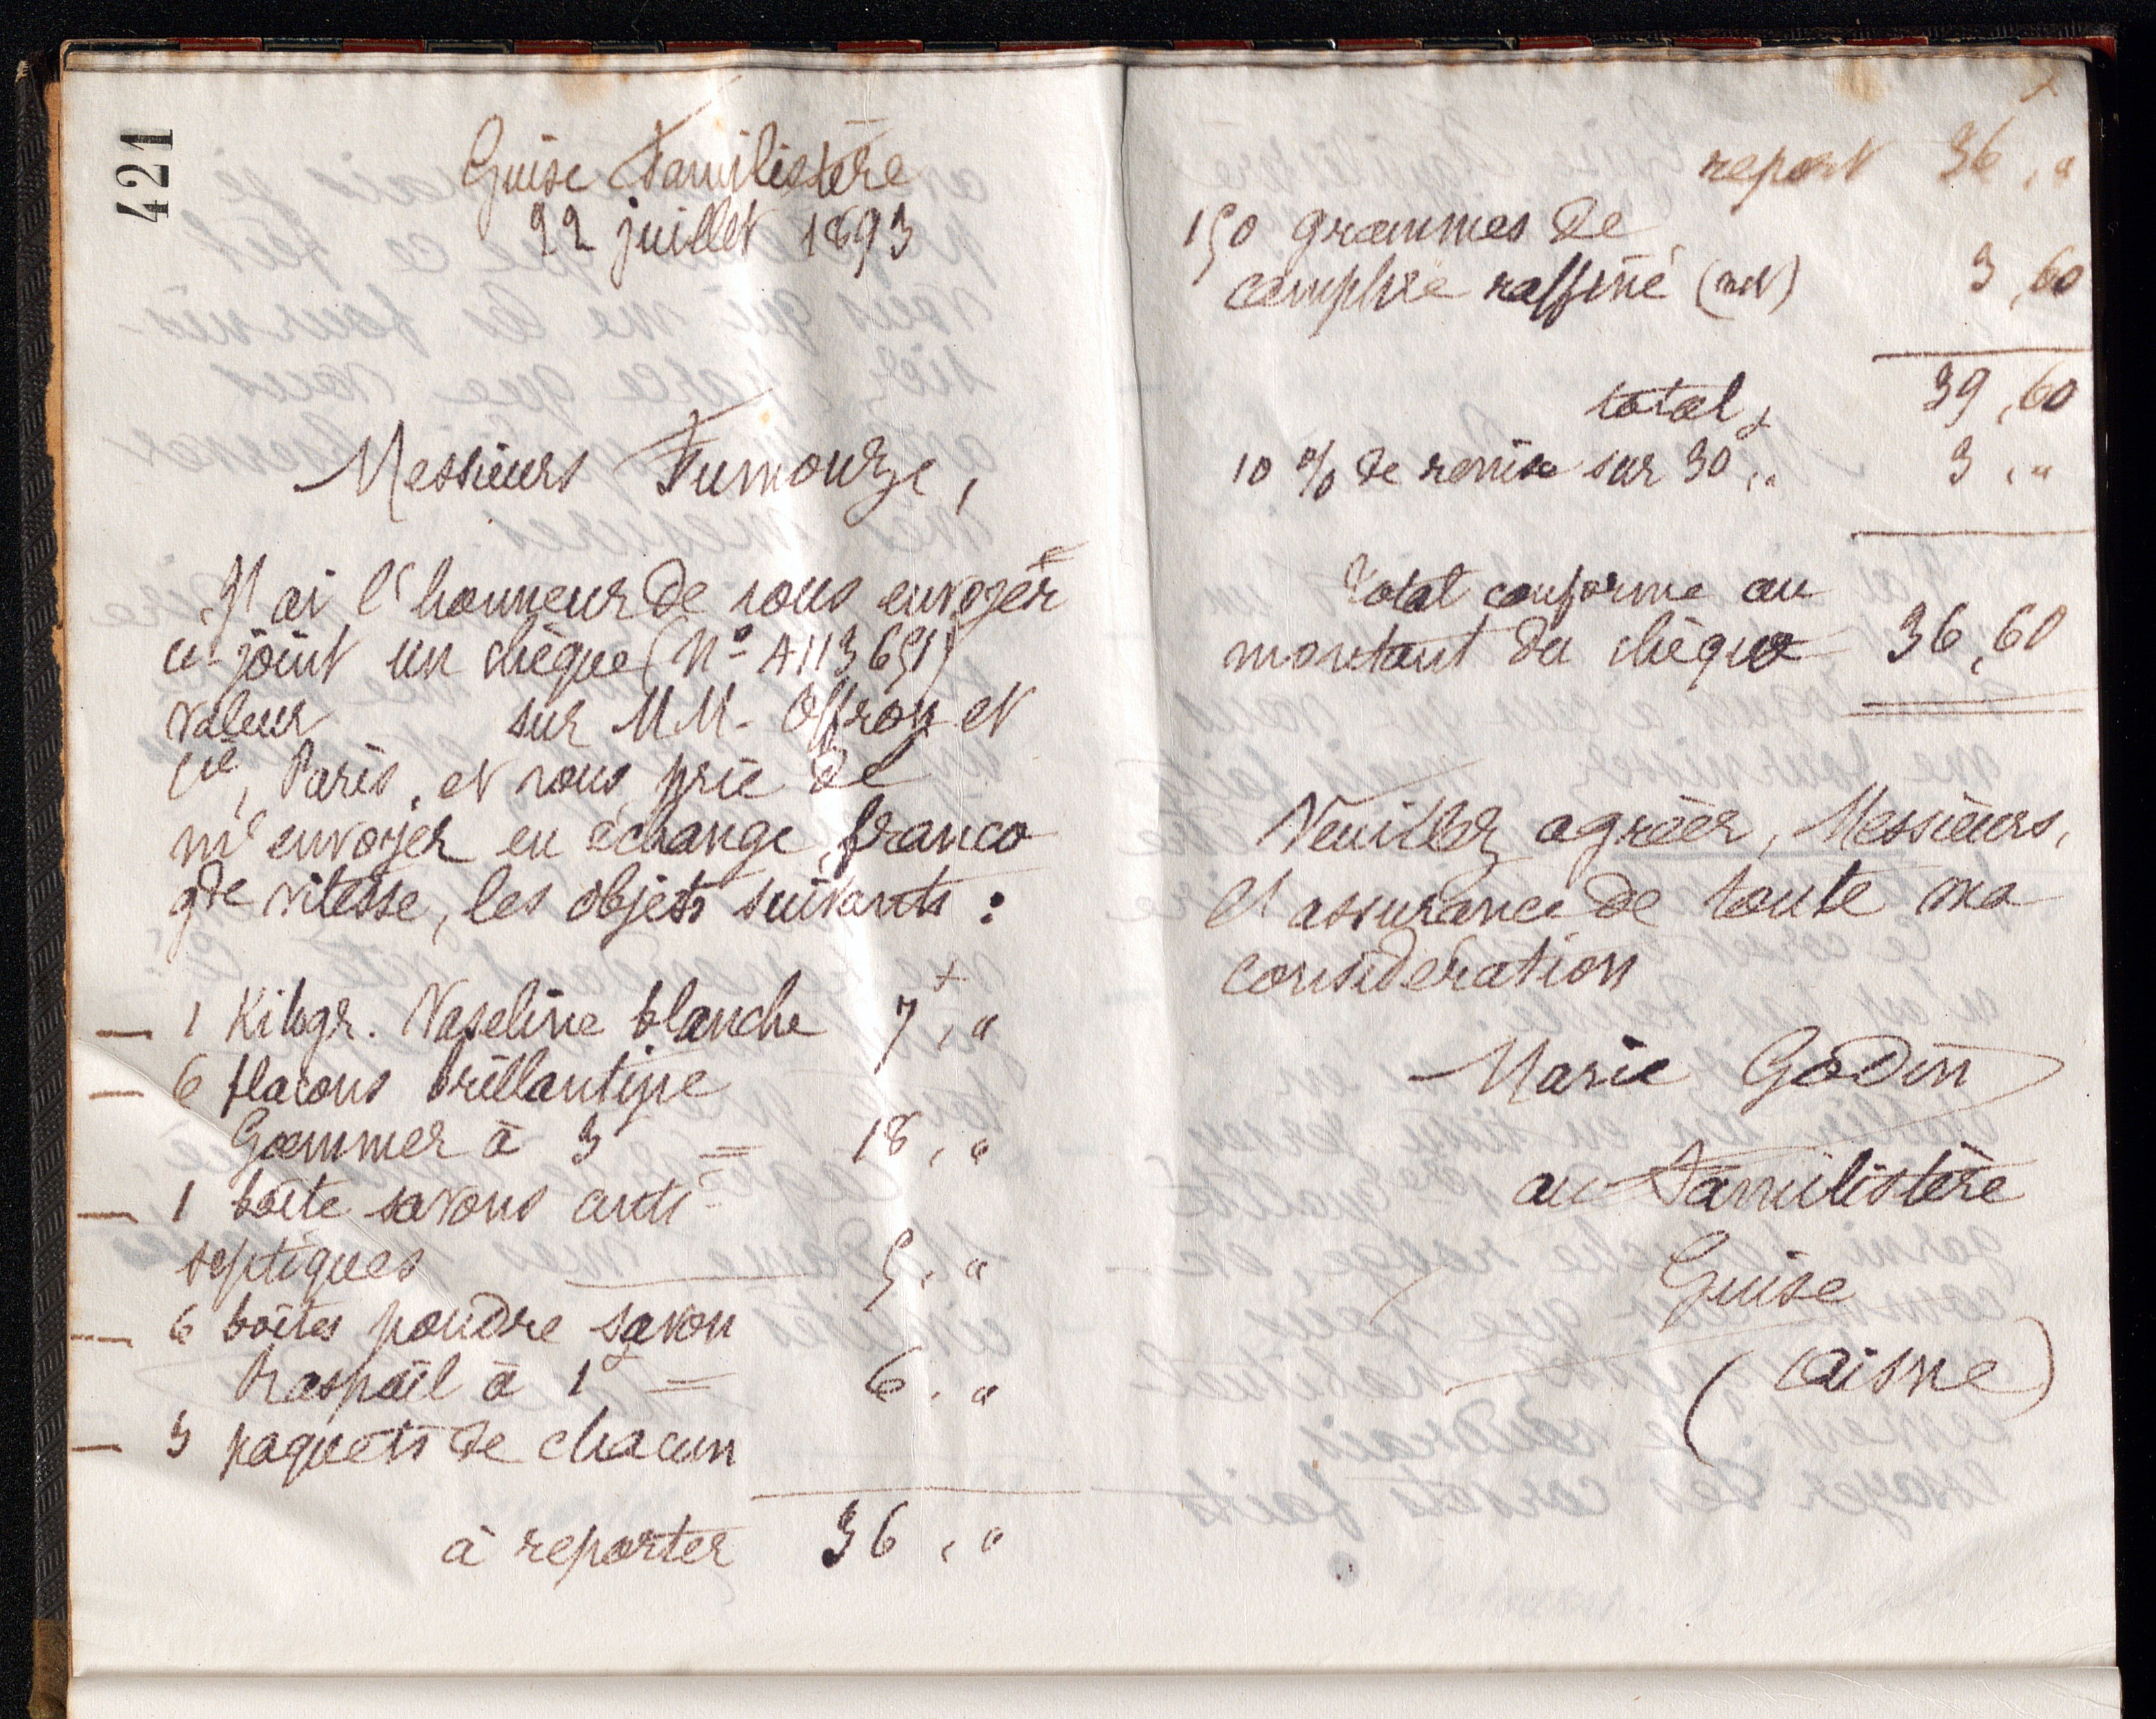 421
Guise Familistère
22 juillet 1893
Messieurs Fumouze,
J'ai l'honneur de vous envoyer
ci-joint un chèque (N° A113651)
valeur sur MM. Offroy et
Cie, Paris, et vous prie de
m'envoyer en échange, franco
gde vitesse, les objets suivants :
— 1 Kilogr. Vaseline blanche 7 + , "
— 6 flacons brillantine
Gammer à 3 = 18, "
— 1 boîte savons anti-
septiques — 5, "
— 6 boîtes poudre savon
Raspail à 1f = 6, "
— 3 paquets de chacun
à reporter 36, "
report 36, "
150 grammes de
camphre raffiné (net) 3,60
total, 39,60
10 % de remise sur 30, " 3, "
Total conforme au
montant du chèque 36,60
Veuillez agréer, Messieurs,
l'assurance de toute ma
considération
Marie Godin
au Familistère
Guise
(Aisne)